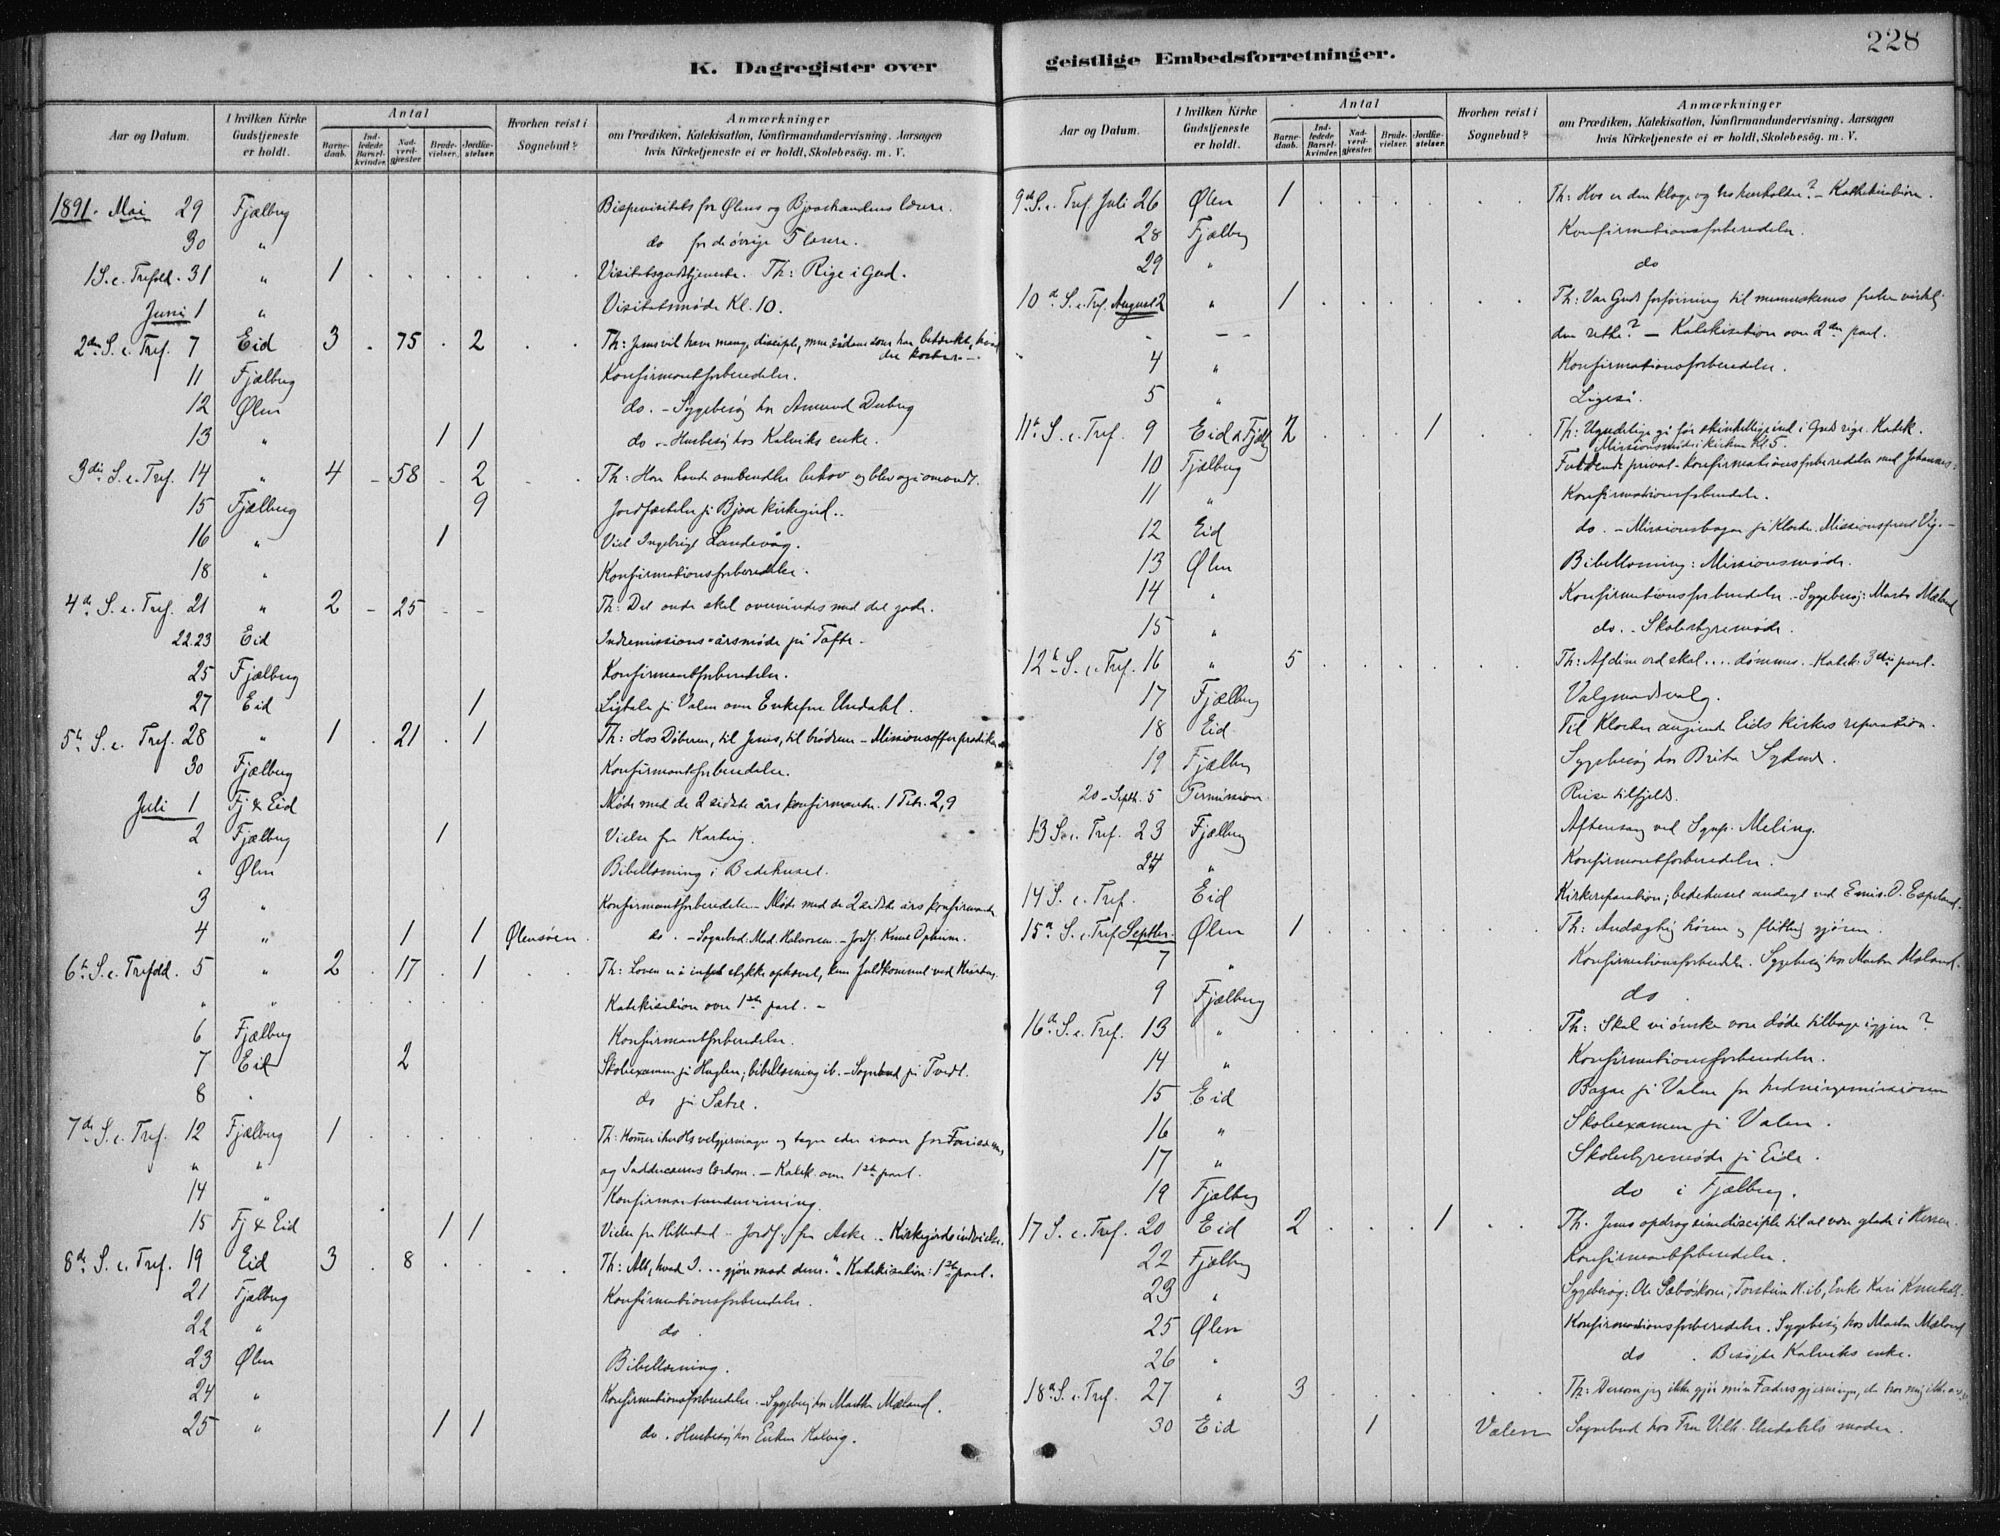 K. Dagregister over
geistlige Embedsforretninger.
228
Aar og Datum.
I hvilken Kirke Gudstjeneste er holdt.
Antal
Barnedaab.
Indledede Barselkvinder.
Nadverdgjæster.
Brudevielser.
Jordfæstelser.
Hvorhen reist i Sognebud?
Anmærkninger
om Prædiken, Katekisation, Konfirmandundervisning. Aarsagen
hvis Kirketjeneste ei er holdt, Skolebesøg. m. V.
1891. Mai 29 Fjælberg Bispevisitats for Ølens og Bjoa lærere.
30 " do for de øvrige 5 lærere.
1 S. e. Trefold. 31 " 1 Visitatsgudstjeneste. Th: Rige i Gud.
Juni 1 " Visitatsmøde Kl. 10.
2den S. e. Tref. 7 Eid 3 75 2 Th: Jesus vil have mange disciple, men sådane som har betænkt, hvad
det koster.
11 Fjælberg Konfirmantforberedelse.
12 Ølen do. - Sygebesøg hos Amund
13 " 1 1 do - Husbesøg hos Kalviks enke.
3die S. e. Tref. 14 " 4 58 2 Th:
15 Fjælberg 9 Jordfæstelse på Bjoa kirkegård.
16 " 1 Viet Ingebrigt Landevåg.
18 " Konfirmationsforberedelse.
4de S. e. Tref. 21 " 2 25 Th: Det onde skal overvindes med det gode.
22.23 Eid Indremissions-årsmøde på Tofte.
25 Fjælberg Konfirmantforberedelse.
27 Eid 1 Ligtale på Valen over Enkefru Undahl.
5te S. e. Tref. 28 " 1 21 1 Th: Hos Døberen, til Jesus, til brødrene - Missionsofferprædiken
30 Fjælberg Konfirmantforberedelse.
Juli 1 Fj & Eid Møde med de 2 sidste års konfirmanter. 1 Petr. 2,9
2 Fjælberg 1 Vielse fra
" Ølen Bibellæsning i Bedehuset.
3 " Konfirmantforberedelse - Møde med de 2 sidste års konfirmanter
4 " 1 1 Ølensøen. do. - Sognebud: Mad. Halvorsen. - Jordf: Knut Opheim.
6te S. e. Trefold. 5 " 2 17 1 Th: Loven er i intet stykke ophævet, kun fuldkommet ved Kristus.
" " Katekisation over 1ste part. -
6 Fjælberg Konfirmantforberedelse.
7 Eid 2 Skoleexamen på Huglen; bibellæsning ib. - Sognebud på Tvedt.
8 " do på Sætre.
7de S. e. Tref. 12 Fjælberg 1 Th: Kommer ihu Hs velgjerninger og tager eder ivare for Farisæernes
" " og Sadducæernes lærdom. - Katek. over 1ste part.
14 " Konfirmantundervisning.
15 Fj & Eid 1 1 Vielse fra - Jordf: fra Aske - Kirkegårdsindvielse.
8de S. e. Tref. 19 Eid 3 8 Th: Alt, hvad I ... gjøre mod dem." - Katekisation: 1ste part.
21 Fjælberg Konfirmationsforberedelse.
22 " do
23 Ølen Bibellæsning.
24 " Konfirmationsforberedelse. - Sygebesøg hos Martha Mæland.
25 " 1 1 do. Husbesøg hos Enken Kalvig.
Aar og Datum.
I hvilken Kirke Gudstjeneste er holdt.
Antal
Barnedaab.
Indledede Barselkvinder.
Nadverdgjæster.
Brudevielser.
Jordfæstelser.
Hvorhen reist i Sognebud?
Anmærkninger
om Prædiken, Katekisation, Konfirmandundervisning. Aarsagen
hvis Kirketjeneste ei er holdt, Skolebesøg. m. V.
9de S. e. Tref. Juli 26 Ølen 1 Th: Hvo er den kloge og tro husholder? - Katekisation.
28 Fjælberg Konfirmationsforberedelse.
29 " do
10de S. e. Tref. August 2 " 1 Th: Var Guds til menneskenes frelse virkelig
den rette? - Katekisation over 2den part.
4 " Konfirmationsforberedelse.
5 " Ligeså.
11te S. e. Tref. 9 Eid & Fjælb 2 1 Th: Ugudelige gå før ind i Guds rige. Katek.
Missionsmøde i kirken Kl. 5
10 Fjælberg privat-konfirmationsforberedelse med Johannes
11 " Konfirmationsforberedelse.
12 Eid do. - Missionsbazar på Kloster. Missionsprest Vig. -
13 Ølen Bibellæsning: Missionsmøde.
14 " Konfirmationsforberedelse - Sygebesøg: Martha Mæland
15 " do. - Skolestyremøde.
12te S. e. Tref. 16 " 5 Th: Af dine ord skal .... dømmes. - Katek. 3die part.
17 Fjælberg Valgmandsvalg.
18 Eid Til Kloster angående Eids kirkes reparation.
19 Fjælberg Sygebesøg hos Brita
20 - Septb. 5 Permission. Reise tilfjelds.
13 S. e. Tref. 23 Fjælberg Aftensang ved Sgnp. Meling.
24 " Konfirmantforberedelse.
14 S. e. Tref. Eid Kirkereparation; bedehuset andagt ved Emis. O. Espeland.
15de S. e. Tref. Septbr. Ølen 1 Th: Andægtig høren og flittig gjøren.
7 " Konfirmationsforberedelse. Sygebesøg hos Martha Mæland.
9 Fjælberg do
16de S. e. Tref. 13 " Th: Skal vi ønske vore døde tilbage igjen?
14 " Konfirmationsforberedelse.
15 Eid Bazar på Valen for hedningemissionen
16 " Skoleexamen på Valen.
17 " Skolestyremøde på Eide.
19 Fjælberg do i Fjælberg.
17 S. e. Tref. 20 Eid 2 1 Th. Jesus opdrog sine disciple til at være glade i Herren.
22 Fjælberg Konfirmantforberedelse.
23 " Sygebesøg: Ole Sæbøskone, Torstein H. ib, Enke Kari
25 Ølen Konfirmationsforberedelse. Sygebesøg hos Martha Mæland
26 " do. Besøgte Kalviks enke.
18de S. e. Tref. 27 " 3 Th: Dersom jeg ikke gjør min Faders gjerninger, da tror mig ikke
30 Eid 1 Valen Sognebud hos Fru Vilh. Undahls moder.